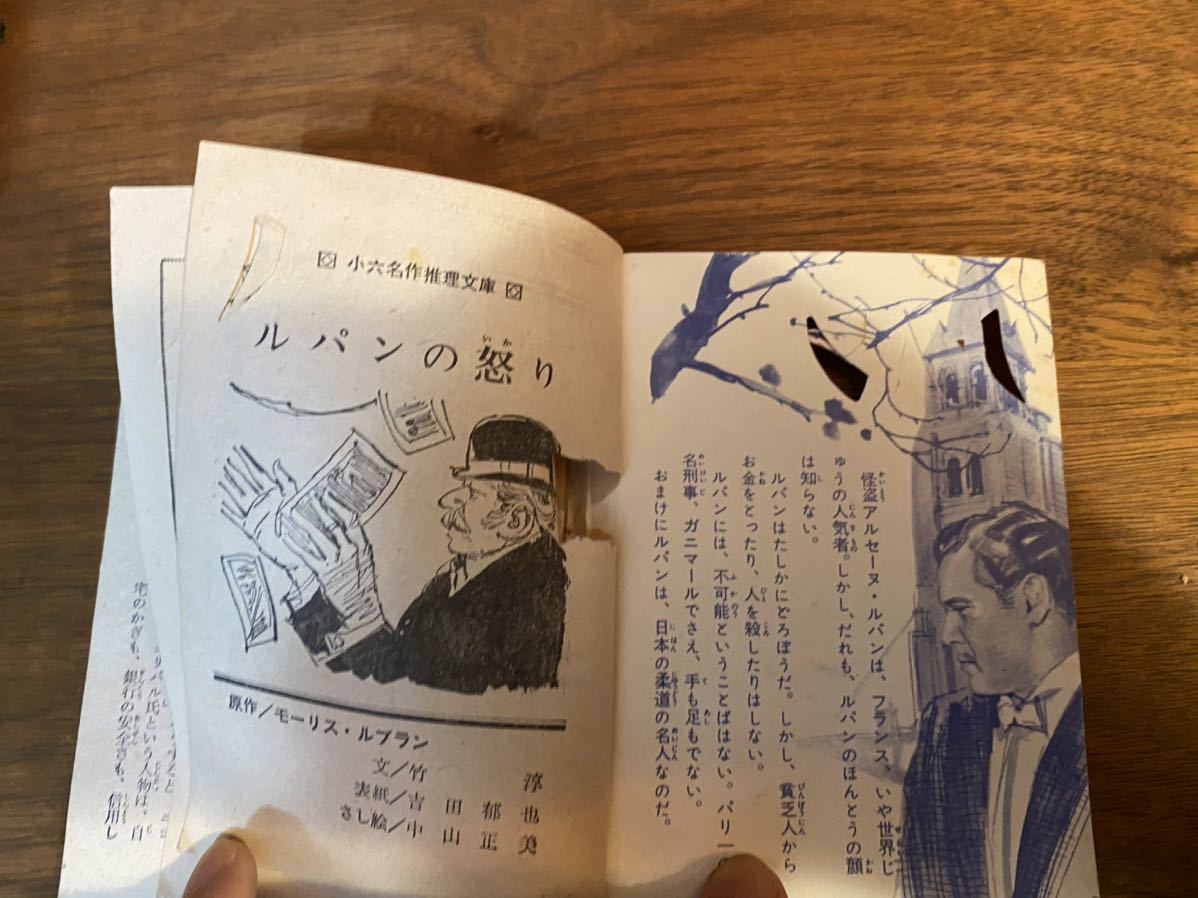 怪盗アルセーヌ・ルパンは、フランス、いや世界じ
ゅうの人気者。しかし、だれも、ルパンのほんとうの顔
は知らない。
ルパンはたしかにどろぼうだ。しかし、貧乏人から
お金をとったり、人を殺したりはしない。
ルパンには、不可能ということばはない。パリ一の
名刑事、ガニマールでさえ、手も足もでない。
おまけにルパンは、日本の柔道の名人なのだ。
小六名作推理文庫
ルパンの怒り
原作/モーリス・ルブラン
文/竹 淳
表紙/吉田郁也
さし絵/中山正美
バル氏という人物は、自
宅のかぎも、銀行の安全さも、信用し